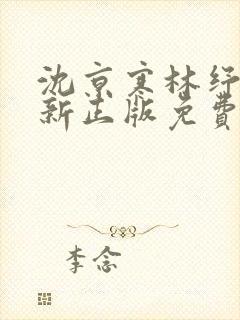 沈京寒林纾
新正版免费
李念